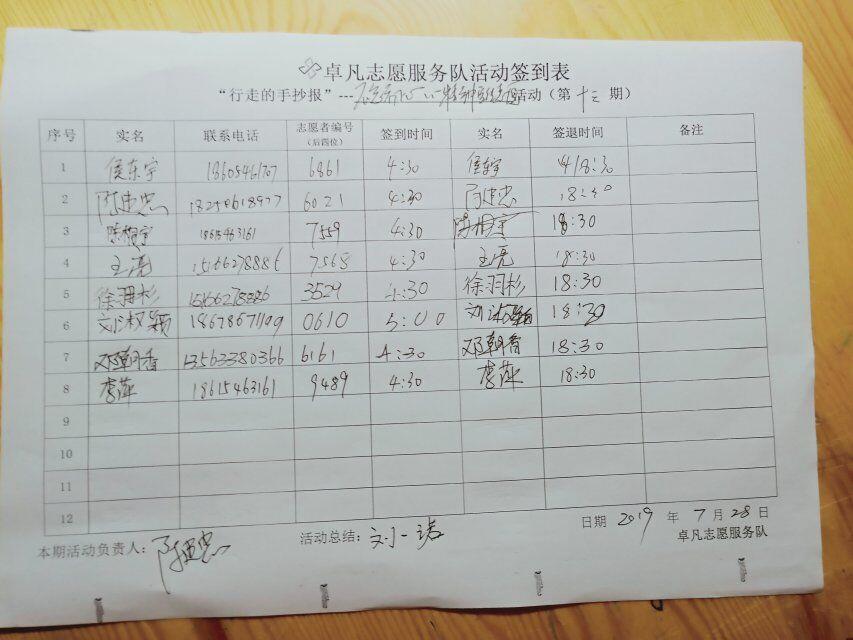 卓凡志愿服务队活动签到表
“行走的手抄报”---活动（第十三期）
序号 实名 联系电话 志愿者编号（后四位） 签到时间 实名 签退时间 备注
1 侯东宇 18605461707 6861 4:30 侯东宇
2 陈建忠 6021 4:30 陈建忠
3 18615463161 7559 4:30 18:30
4 王亮 15166278886 7565 4:30 王亮 18:30
5 徐羽杉 3529 4:30 徐羽杉 18:30
6 刘淑颖 0610 5:00 刘淑颖 18:30
7 邓朝香 13563380366 6161 4:30 邓朝香 18:30
8 李萍 18615463161 9489 4:30 李萍 18:30
9
10
11
12
日期 2019 年 7 月 28 日
本期活动负责人：陈建忠 活动总结：刘一诺 卓凡志愿服务队